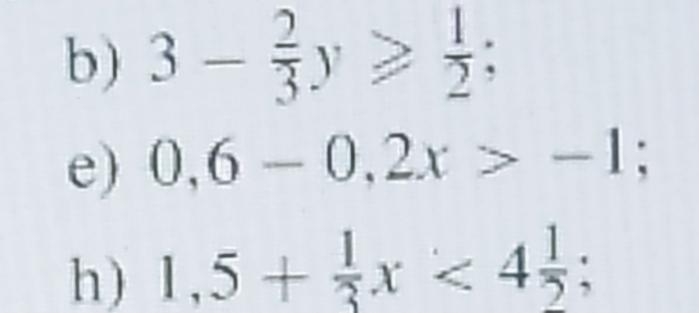 b) 3 − 2/3 y ⩾ 1/2;
e) 0,6 − 0,2x > −1;
h) 1,5 + 1/3 x < 4 1/2;